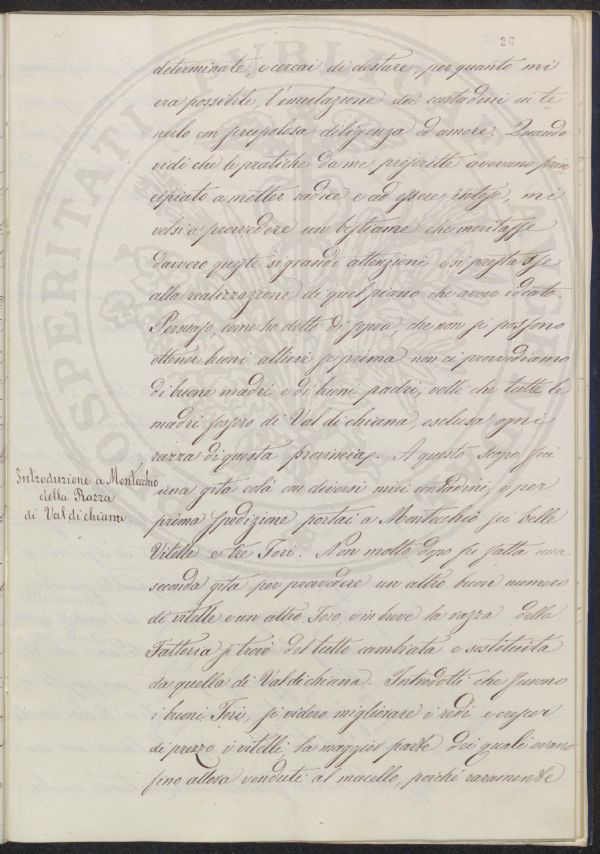 26
determinate, e cercai di destare, per quanto mi
era possibile l'emulazione dei contadini in te
nerlo con scrupolosa diligenza ed amore. Quando
vidi che le pratiche da me prescritte avevano prin
cipiato a metter radice e ad essere intese, mi
volsi a provvedere un bestiame che meritasse
davvero queste sì grandi attenzioni, e si prestasse
alla realizzazione di quel piano che avevo ideato.
Persuaso, come ho detto di sopra, che non si possono
ottener buoni allievi se prima non ci provvediamo
di buone madri e di buoni padri, volli che tutte le
madri fossero di Val di chiana, esclusa ogni
razza di questa provincia. A questo scopo feci
Introduzione a Montecchio
della Razza
di Val di chiana
una gita colà con diversi miei contadini, e per
prima spedizione portai a Montecchio sei belle
Vitelle e tre Tori. Non molto dopo fu fatta una
seconda gita per provvedere un altro buon numero
di vitelle e un altro Toro, e in breve la razza della
Fattoria si trovò del tutto cambiata e sostituita
da quella di Valdichiana. Introdotti che furono
i buoni Tori, si videro migliorare i redi e crescer
di prezzo i vitelli, la maggior parte dei quali erano
fino allora venduti al macello, poichè raramente
PROSPERITATI PUBLICAE